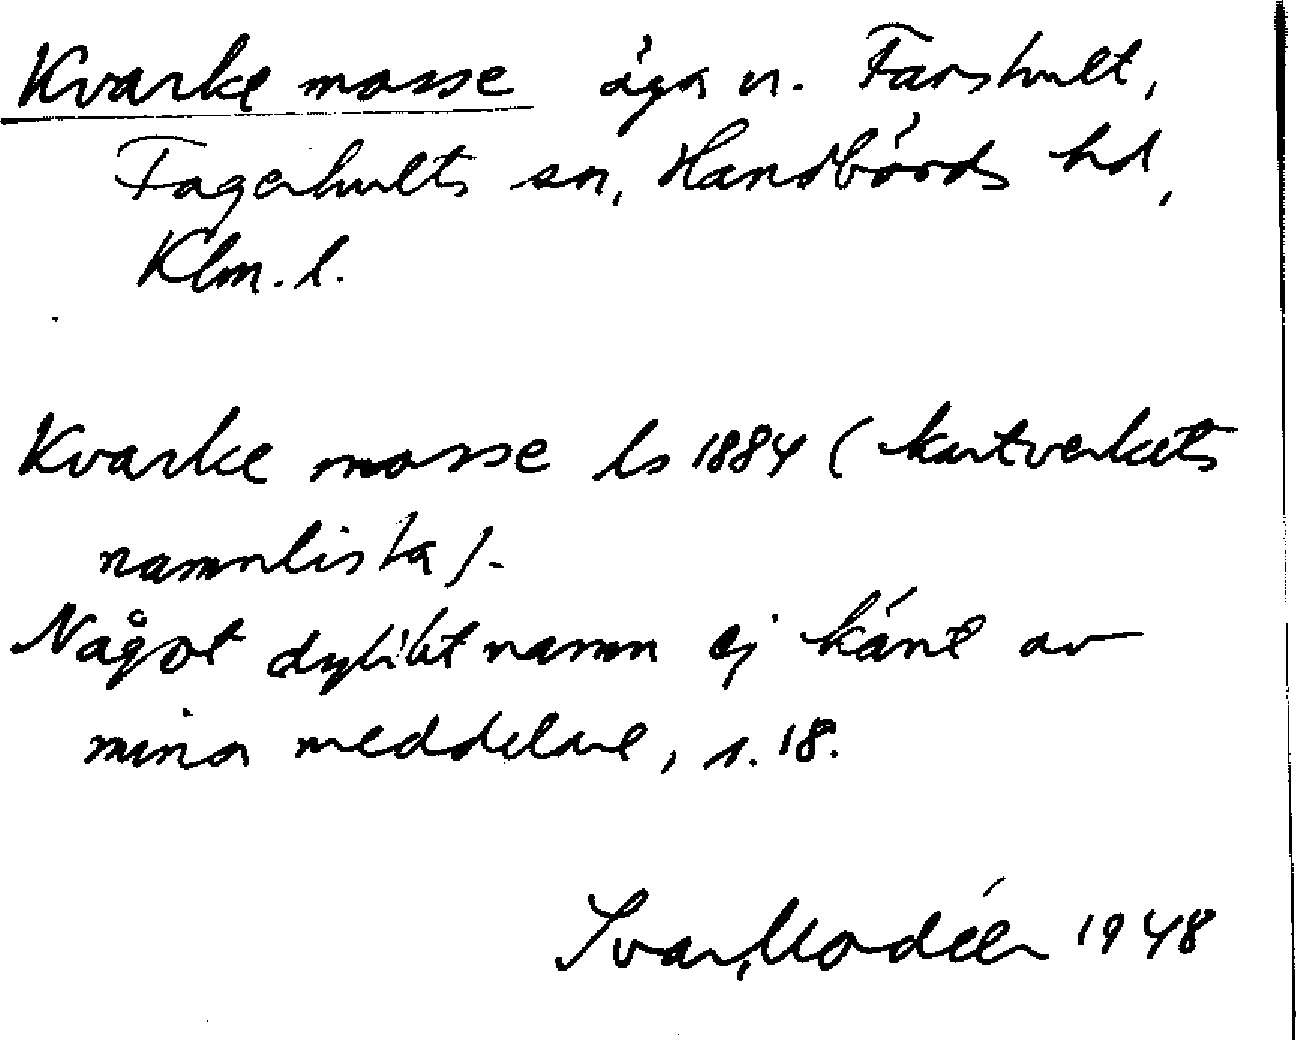 Kvarke mosse äga n. Farshult,
Fagerhults sn, Handbörds hd,
Klm. l.
Kvarke mosse ls 1884 (kartverkets
namnlista).
Något dylikt namn ej känt av
mina meddelare, s. 18.
Ivar Modéer 1948